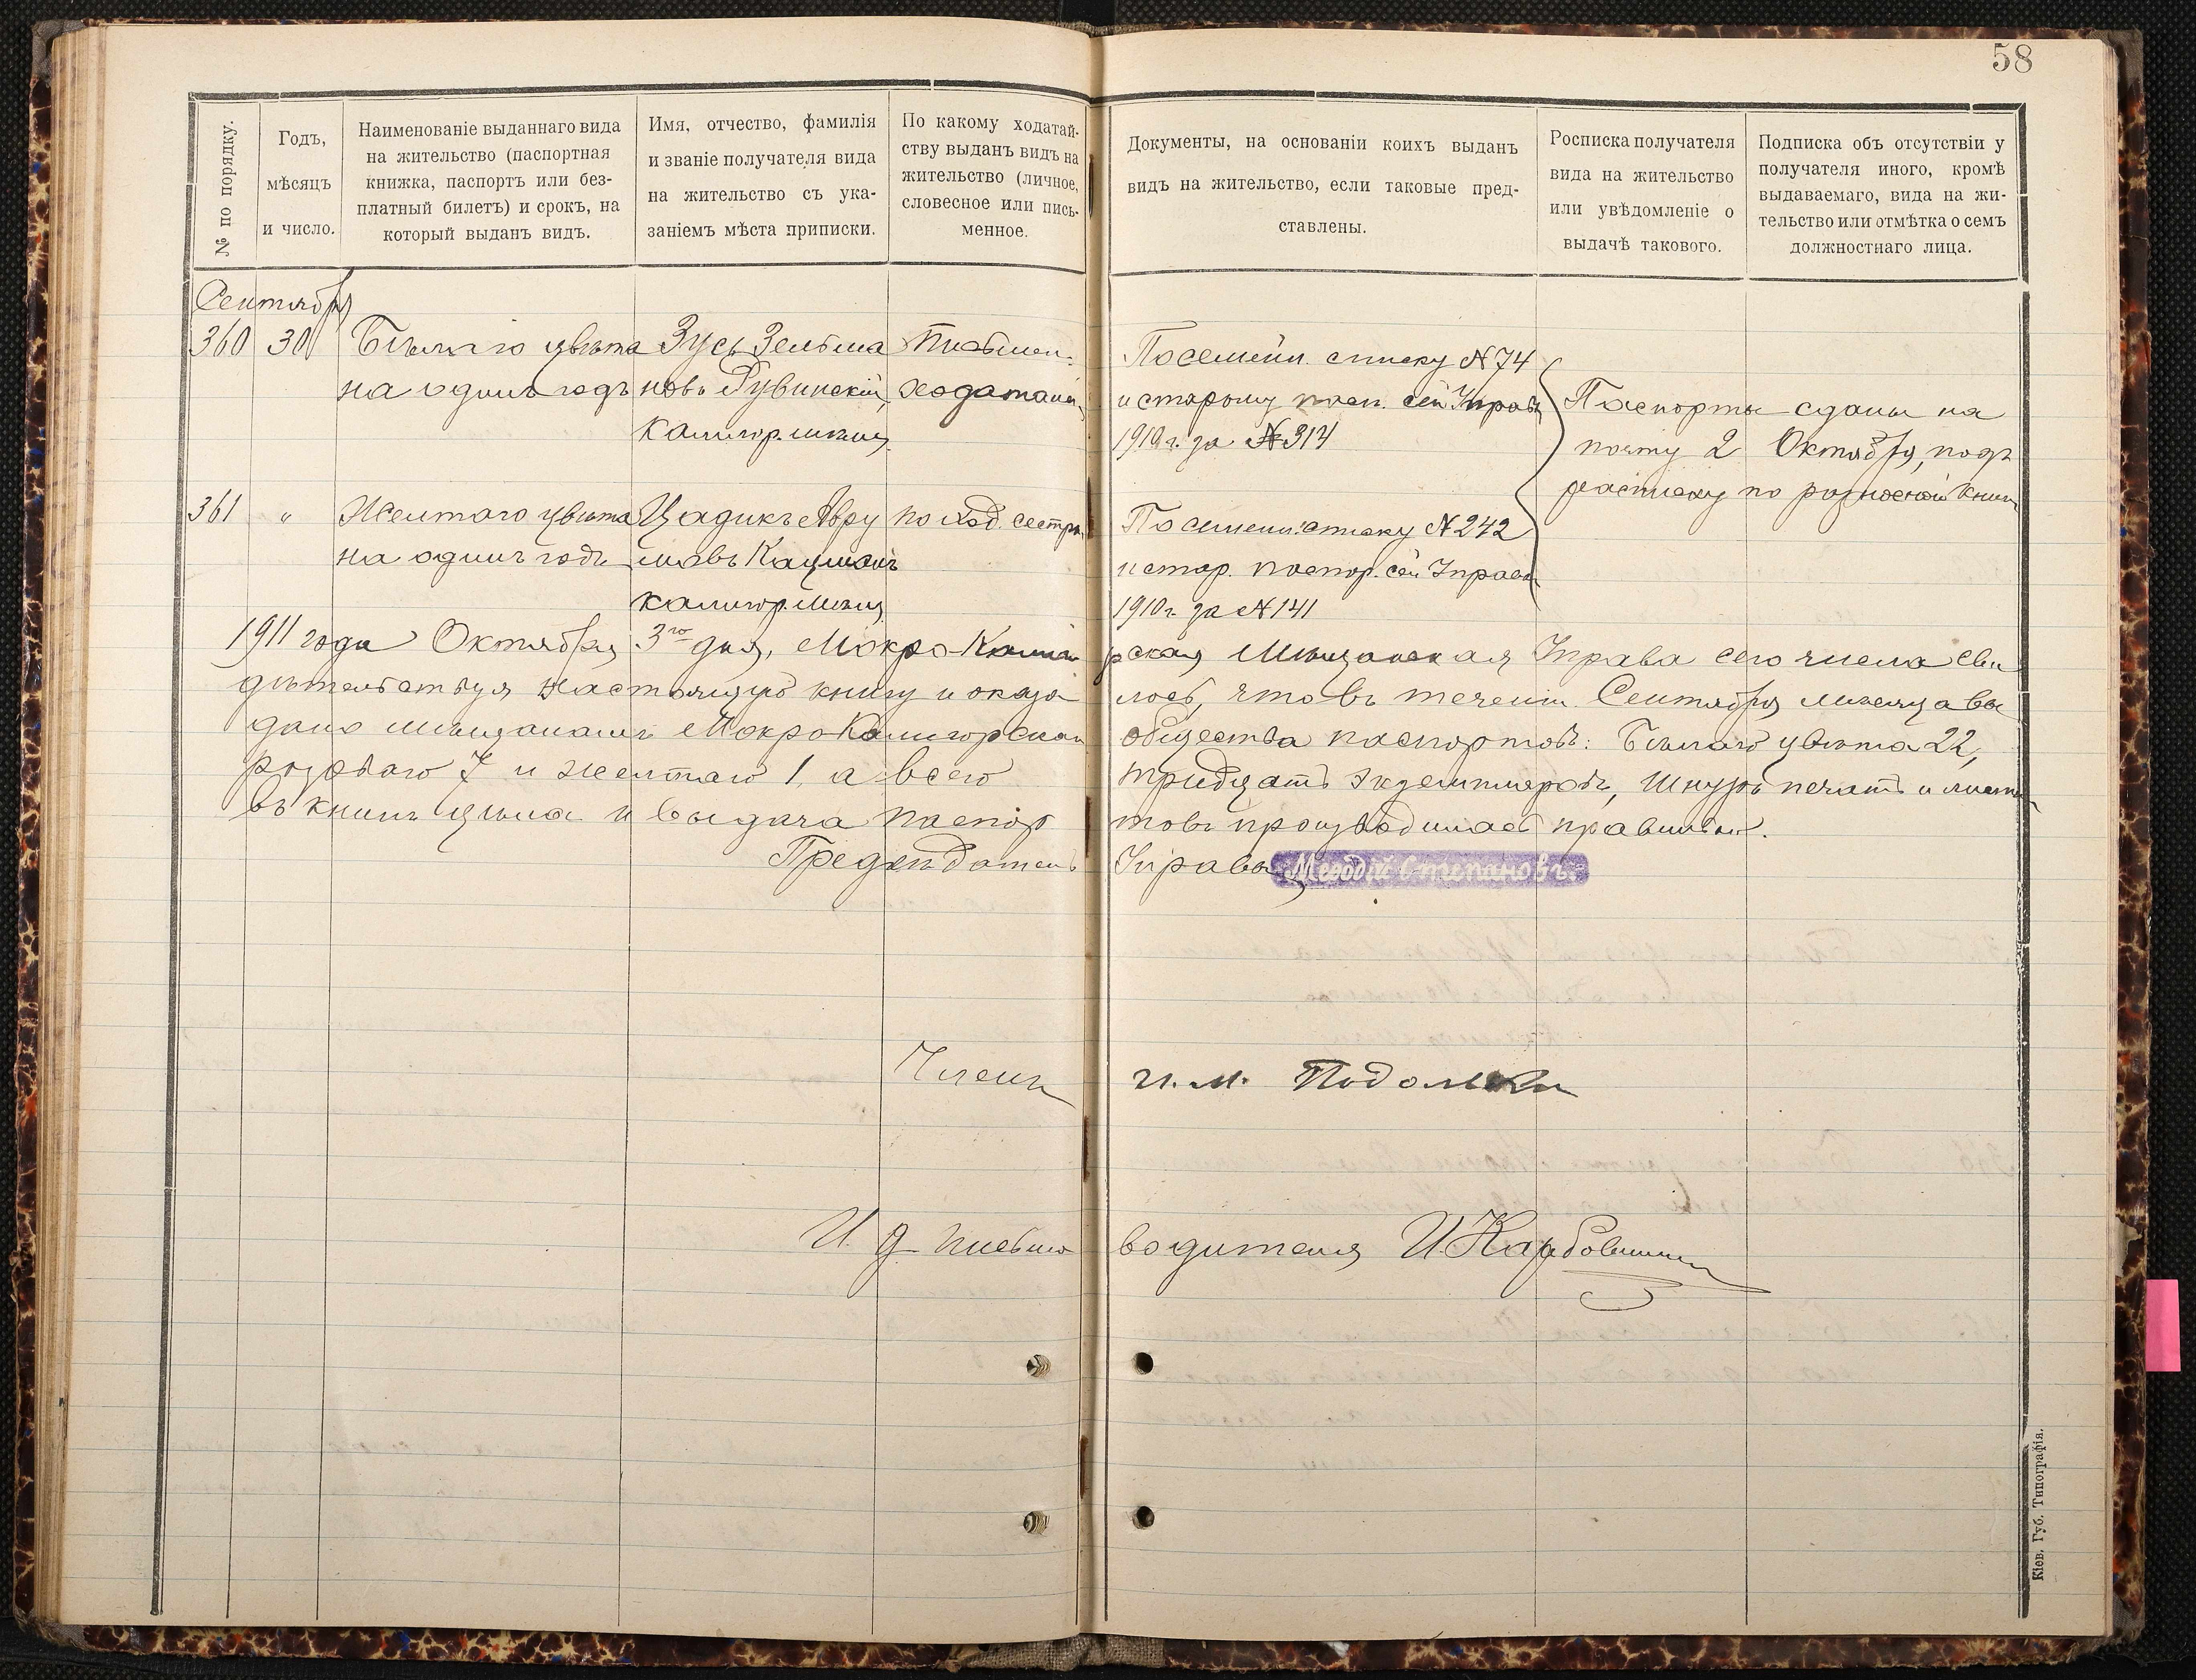 58
№ по порядку.
Годъ,
мѣсяцъ
и число.
Наименованіе выданнаго вида
на жительство (паспортная
книжка, паспортъ или без-
платный билетъ) и срокъ, на
который выданъ видъ.
Имя, отчество, фамилія
и званіе получателя вида
на жительство съ ука-
заніемъ мѣста приписки.
По какому ходатай-
ству выданъ видъ на
жительство (личное,
словесное или пись-
менное.
Документы, на основаніи коихъ выданъ
видъ на жительство, если таковые пред-
ставлены.
Росписка получателя
вида на жительство
или увѣдомленіе о
выдачѣ такового.
Подписка объ отсутствіи у
получателя иного, кромѣ
выдаваемаго, вида на жи-
тельство или отмѣтка о семъ
должностнаго лица.
Сентября
360 30 Бѣлаго цвѣта Зусь Зельма Письмен.
на одинъ годъ новъ Рувинскій, ходатай
Калигор. мѣщ.
По семейн. списку № 74
и старому пасп. сей Управ
1910 г. за № 314
Паспорты сданы на
почту 2 Октября, подъ
расписку по разносной книг
361 " Желтаго цвѣта Цадикъ Авру по ход. сестры
на одинъ годъ мовъ Кацманъ
Калигор. мѣщ.
По семейн. списку № 242
и стар. паспор. сей Управы
1910 г. за № 141
1911 года Октября 3го дня, Мокро-Калиго рская Мѣщанская Управа сего числа сви
дѣтельствуя настоящую книгу и оказа лось, что въ теченіи Сентября мѣсяца вы
дано мѣщанамъ Мокро Калигорскаго общества паспортовъ: Бѣлаго цвѣта 22,
розоваго 7 и желтаго 1, а всего тридцать экземпляровъ, Шнуръ печать и листы
въ книгѣ цѣла и выдача паспор товъ производилась правильно.
Предсѣдатель Управы Мефодій Степановъ.
Членъ И. М. Подольски
И д письмо водителя И Карбовни
Кіев. Губ. Типографія.